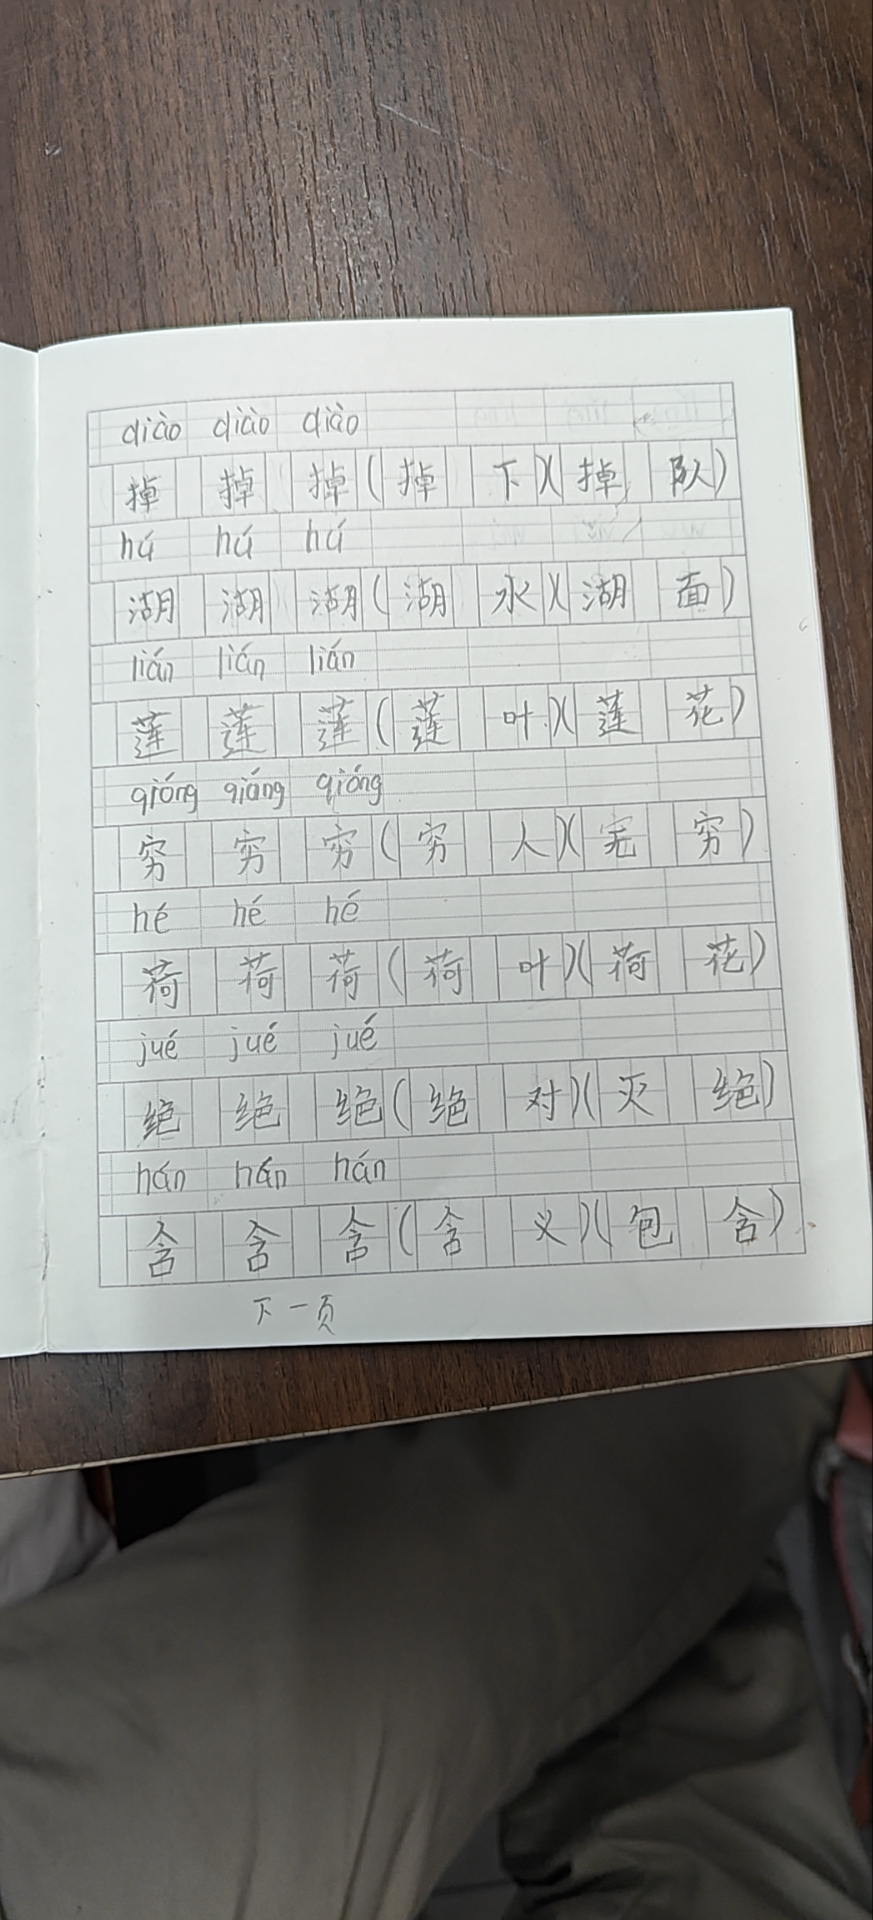 diào diào diào
掉 掉 掉 (掉 下)(掉 队)
hú hú hú
湖 湖 湖 (湖 水)(湖 面)
lián lián lián
莲 莲 莲 (莲 叶)(莲 花)
qióng qióng qióng
穷 穷 穷 (穷 人)(无 穷)
hé hé hé
荷 荷 荷 (荷 叶)(荷 花)
jué jué jué
绝 绝 绝 (绝 对)(灭 绝)
hán hán hán
含 含 含 (含 义)(包 含)
下一页